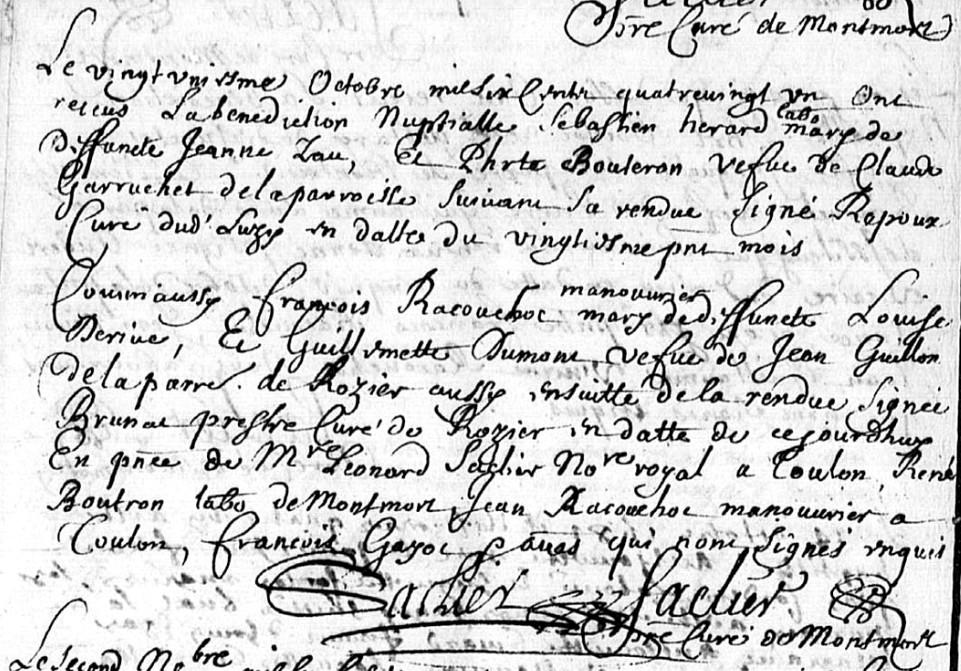 pre Curé de Montmort
Le vingt uniesme Octobre mil six Cents quatrevingt un Ont
receus La benediction Nuptialle Sebastien herard labo mary de
Deffuncte Jeanne Lau, Et Phrte Bouteron vefue de Claude
Garruchet de la parroisse suivant sa rendue signé Rapoux
Curé dud' Luzy en datte du vingtiesme pnt mois
Comm'aussy François Racouchot manouvrier mary de deffuncte Louise
Derive, Et Guillemette Dumont vefue de Jean Guillon
de la parre. de Rozier aussy ensuitte de la rendue signée
Brunat prestre Curé de Rozier en datte de cejourdhuy
En pnce de Mre Leonard Saclier Nore royal a Toulon, René
Boutron labo de Montmort, Jean Racouchot manouvrier a
Toulon, François Gayot qui n'ont signés enquis
Saclier Saclier
pre Curé de Montmort
Le second Nobre